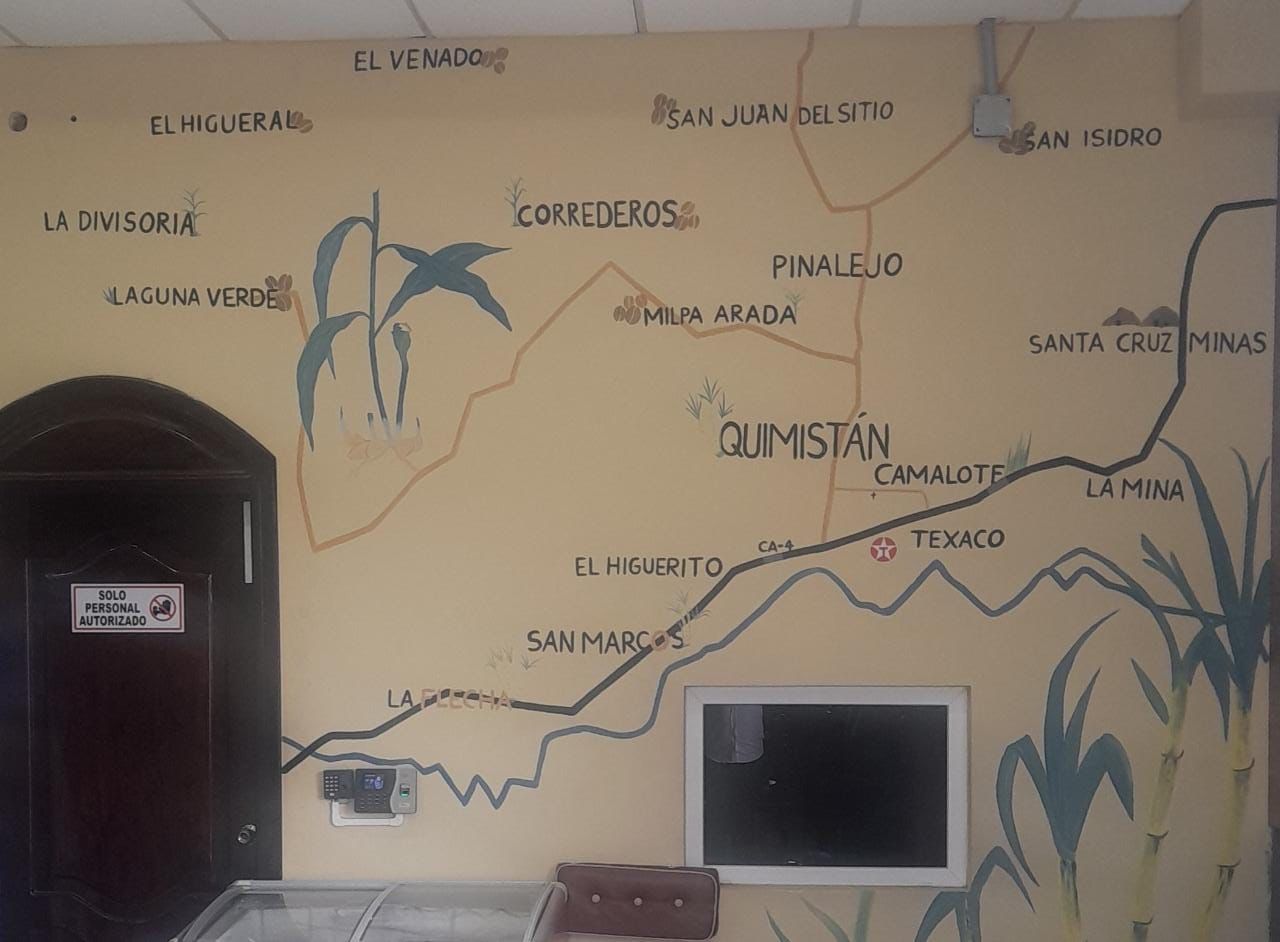 EL VENADO
EL HIGUERAL
SAN JUAN DEL SITIO
SAN ISIDRO
LA DIVISORIA
CORREDEROS
PINALEJO
LAGUNA VERDE
MILPA ARADA
SANTA CRUZ MINAS
QUIMISTÁN
CAMALOTE
LA MINA
CA-4
TEXACO
EL HIGUERITO
SOLO
PERSONAL
AUTORIZADO
SAN MARCOS
LA FLECHA